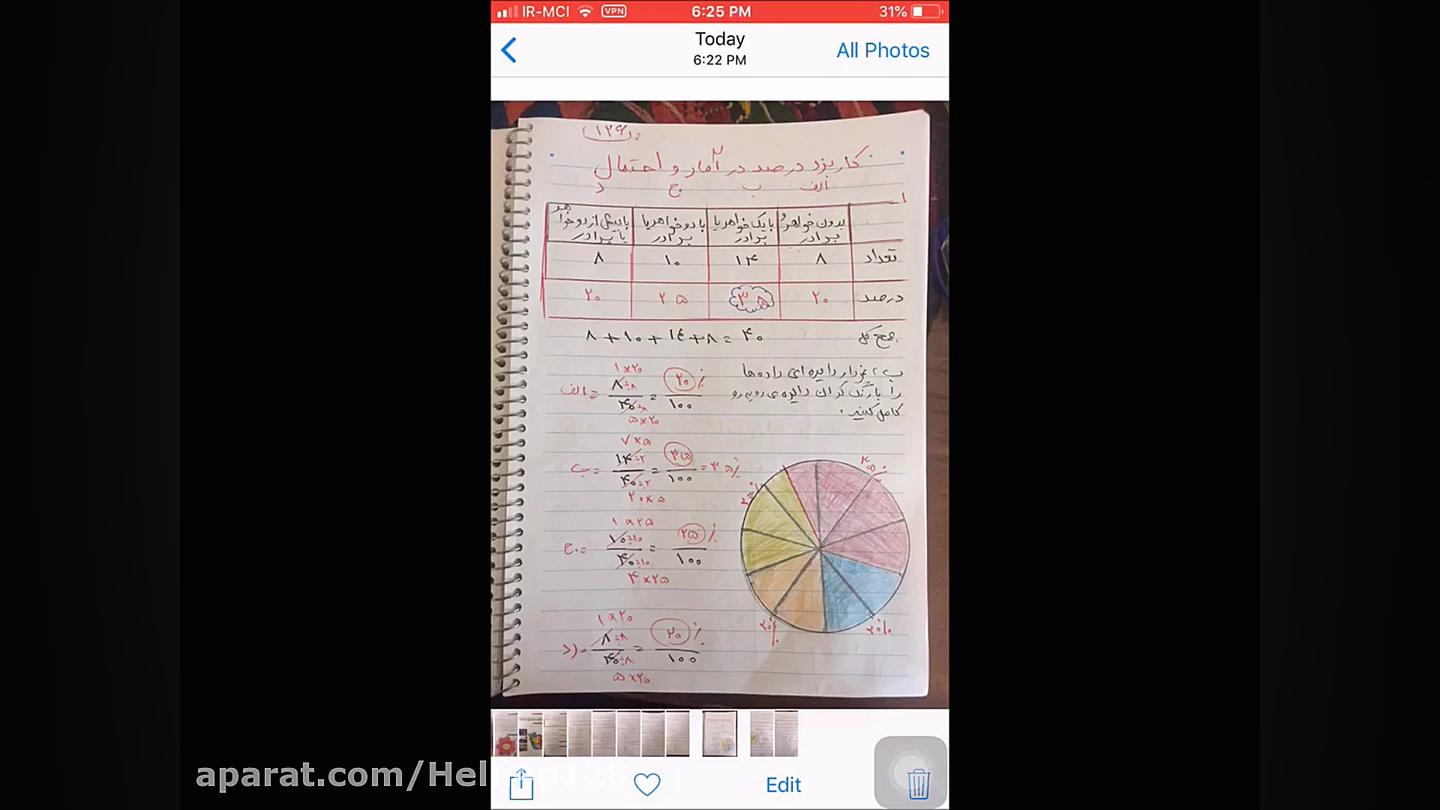 IR-MCI VPN 6:25 PM 31%
Today
6:22 PM
All Photos
۱۲۶
کاربرد درصد در آمار و احتمال ۲
الف ب ج د
۱-
بدون خواهر و برادر
با یک خواهر یا برادر
با دو خواهر یا برادر
با بیش از دو خواهر یا برادر
تعداد ۸ ۱۴ ۱۰ ۸
درصد ۲۰ ۳۵ ۲۵ ۲۰
جمع کل ۸ + ۱۰ + ۱٤ + ۸ = ۴۰
ب) نمودار دایره ای داده ها
را با رنگ کردن دایره ی رو به رو
کامل کنید.
۱×۲۰
الف = ۸÷۸ = ۲۰ ٪
۴۰÷۸ ۱۰۰
۵×۲۰
۷×۵
ب = ۱۴÷۲ = ۳۵ = ۳۵٪
۴۰÷۲ ۱۰۰
۲۰×۵
۱×۲۵
ج = ۱۰÷۱۰ = ۲۵ ٪
۴۰÷۱۰ ۱۰۰
۴×۲۵
۱×۲۰
د) = ۸÷۸ = ۲۰ ٪
۴۰÷۸ ۱۰۰
۵×۲۰
۲۰٪
۲۰٪
Edit